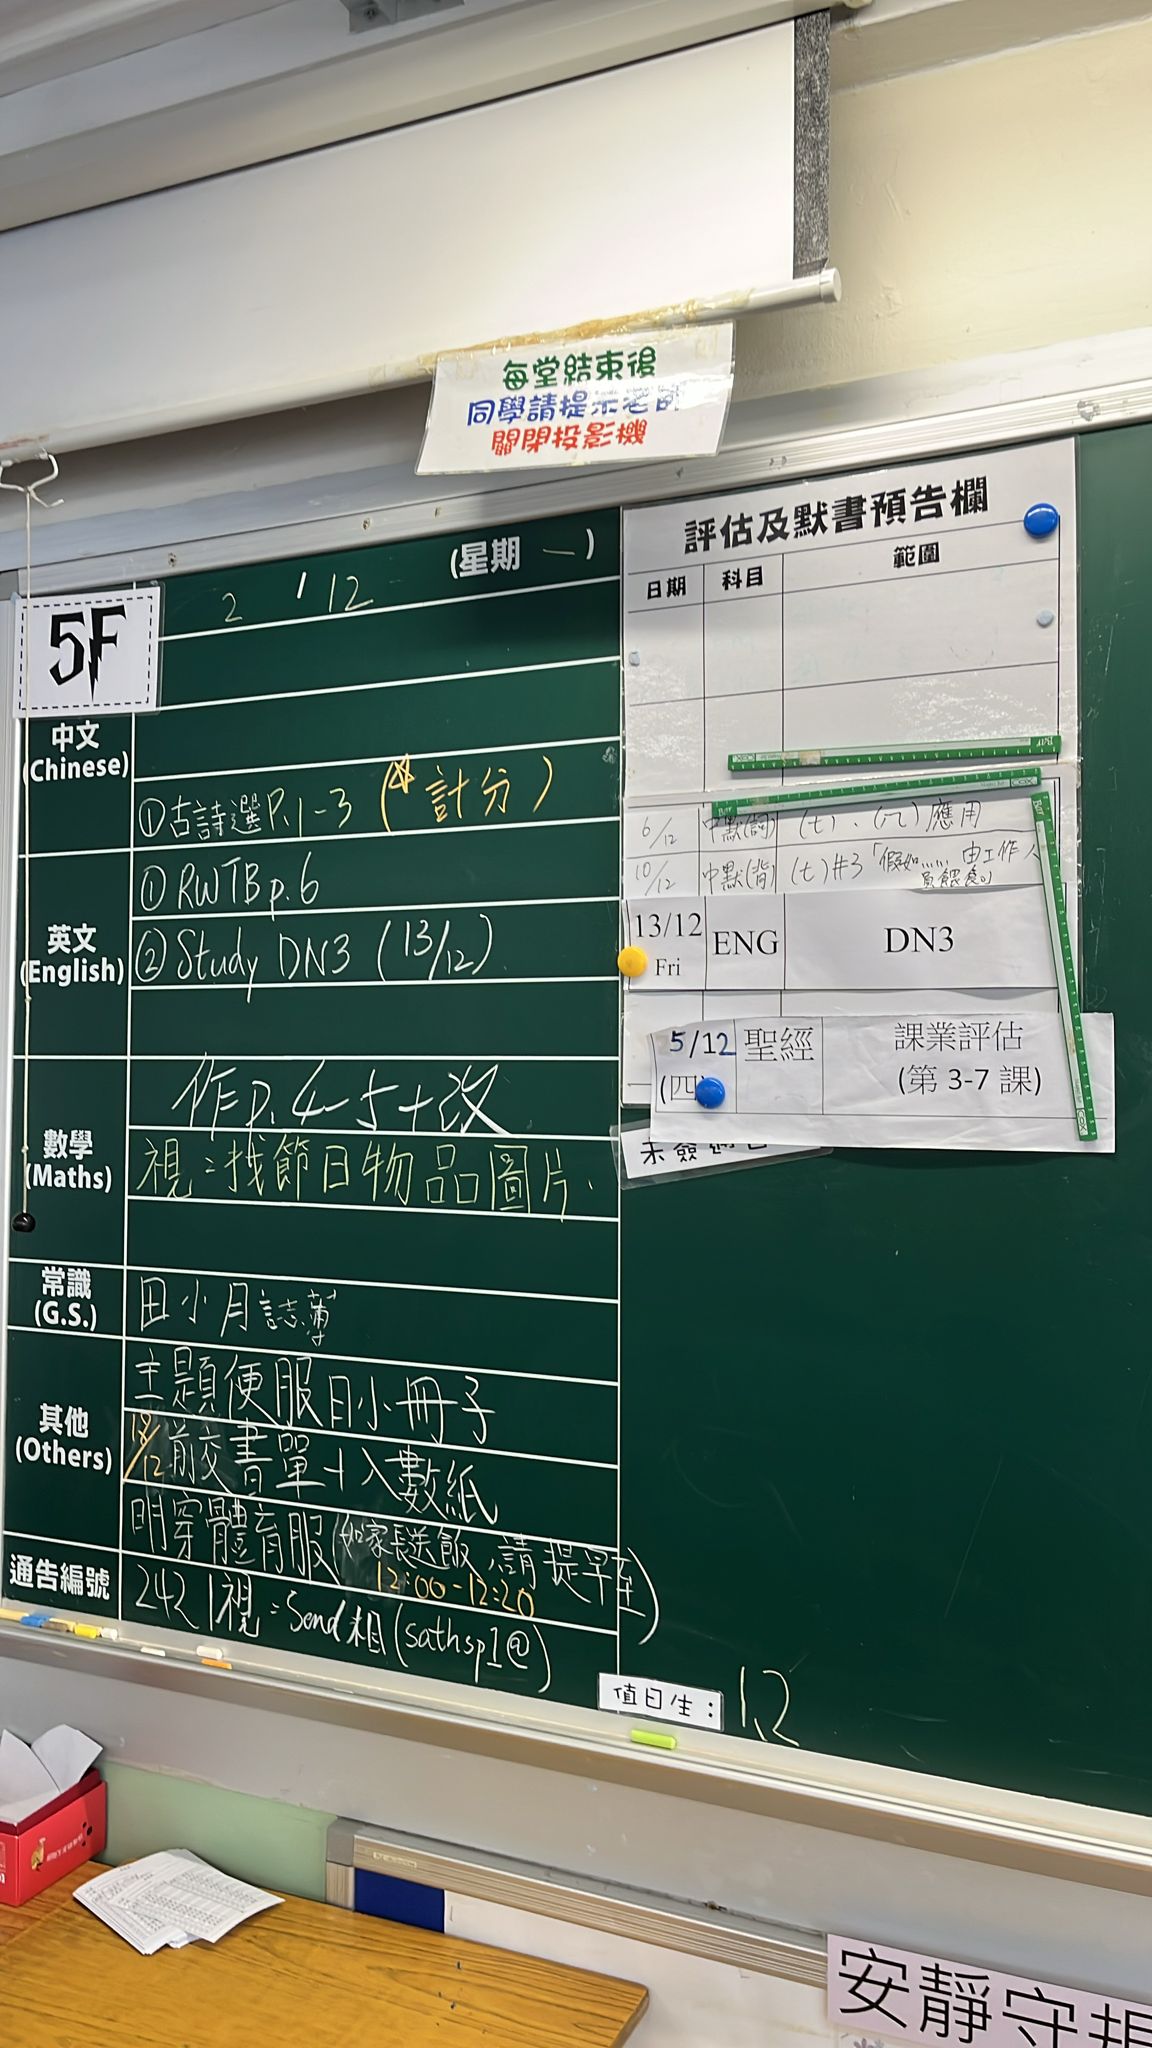 每堂結束後
同學請提示老師
關閉投影機
2 / 12 (星期 一)
5F
中文
(Chinese)
①古詩選P.1-3 (*計分)
英文
(English)
① RWTB p.6
② Study DN3 (13/12)
數學
(Maths)
作P.4-5+改
視：找節日物品圖片.
常識
(G.S.)
田小月誌薄
其他
(Others)
主題便服日小冊子
18/12前交書單+入數紙
明穿體育服(如家長送飯,請提早至)
12:00-12:20
通告編號
242 | 視：Send相(sathsp1@)
值日生：
12
評估及默書預告欄
日期 科目 範圍
6/12 中默(詞) (七)、(八)應用
10/12 中默(背) (七)#3「假如…… 由工作人員餵食」
13/12 Fri ENG DN3
5/12 (四) 聖經 課業評估 (第 3-7 課)
未簽
安靜守規